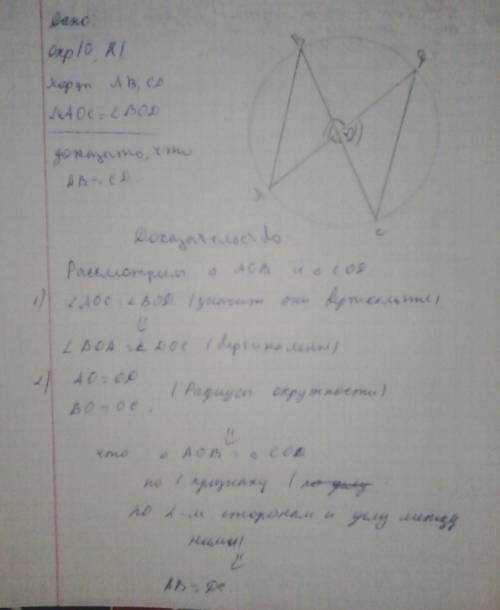 Дано:
Окр(О, R)
хорды AB, CD
∠AOC = ∠BOD
доказать, что
AB = CD.
B
D
O
A
C
Доказательство
Рассмотрим △ AOB и △ COD
1) ∠AOC = ∠BOD (значит они вертикальные)
⇓
∠BOA = ∠DOC (вертикальны)
2) AO = OD
BO = OC, (Радиусы окружности)
⇓
что △ AOB = △ COD
по 1 признаку (по углу
по 2-м сторонам и углу между
ними)
⇓
AB = DC